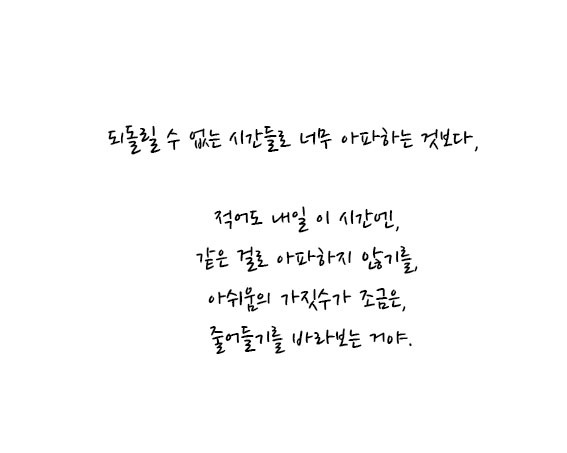 되돌릴 수 없는 시간들로 너무 아파하는 것보다,
적어도 내일 이 시간엔,
같은 걸로 아파하지 않기를,
아쉬움의 가짓수가 조금은,
줄어들기를 바라보는 거야.